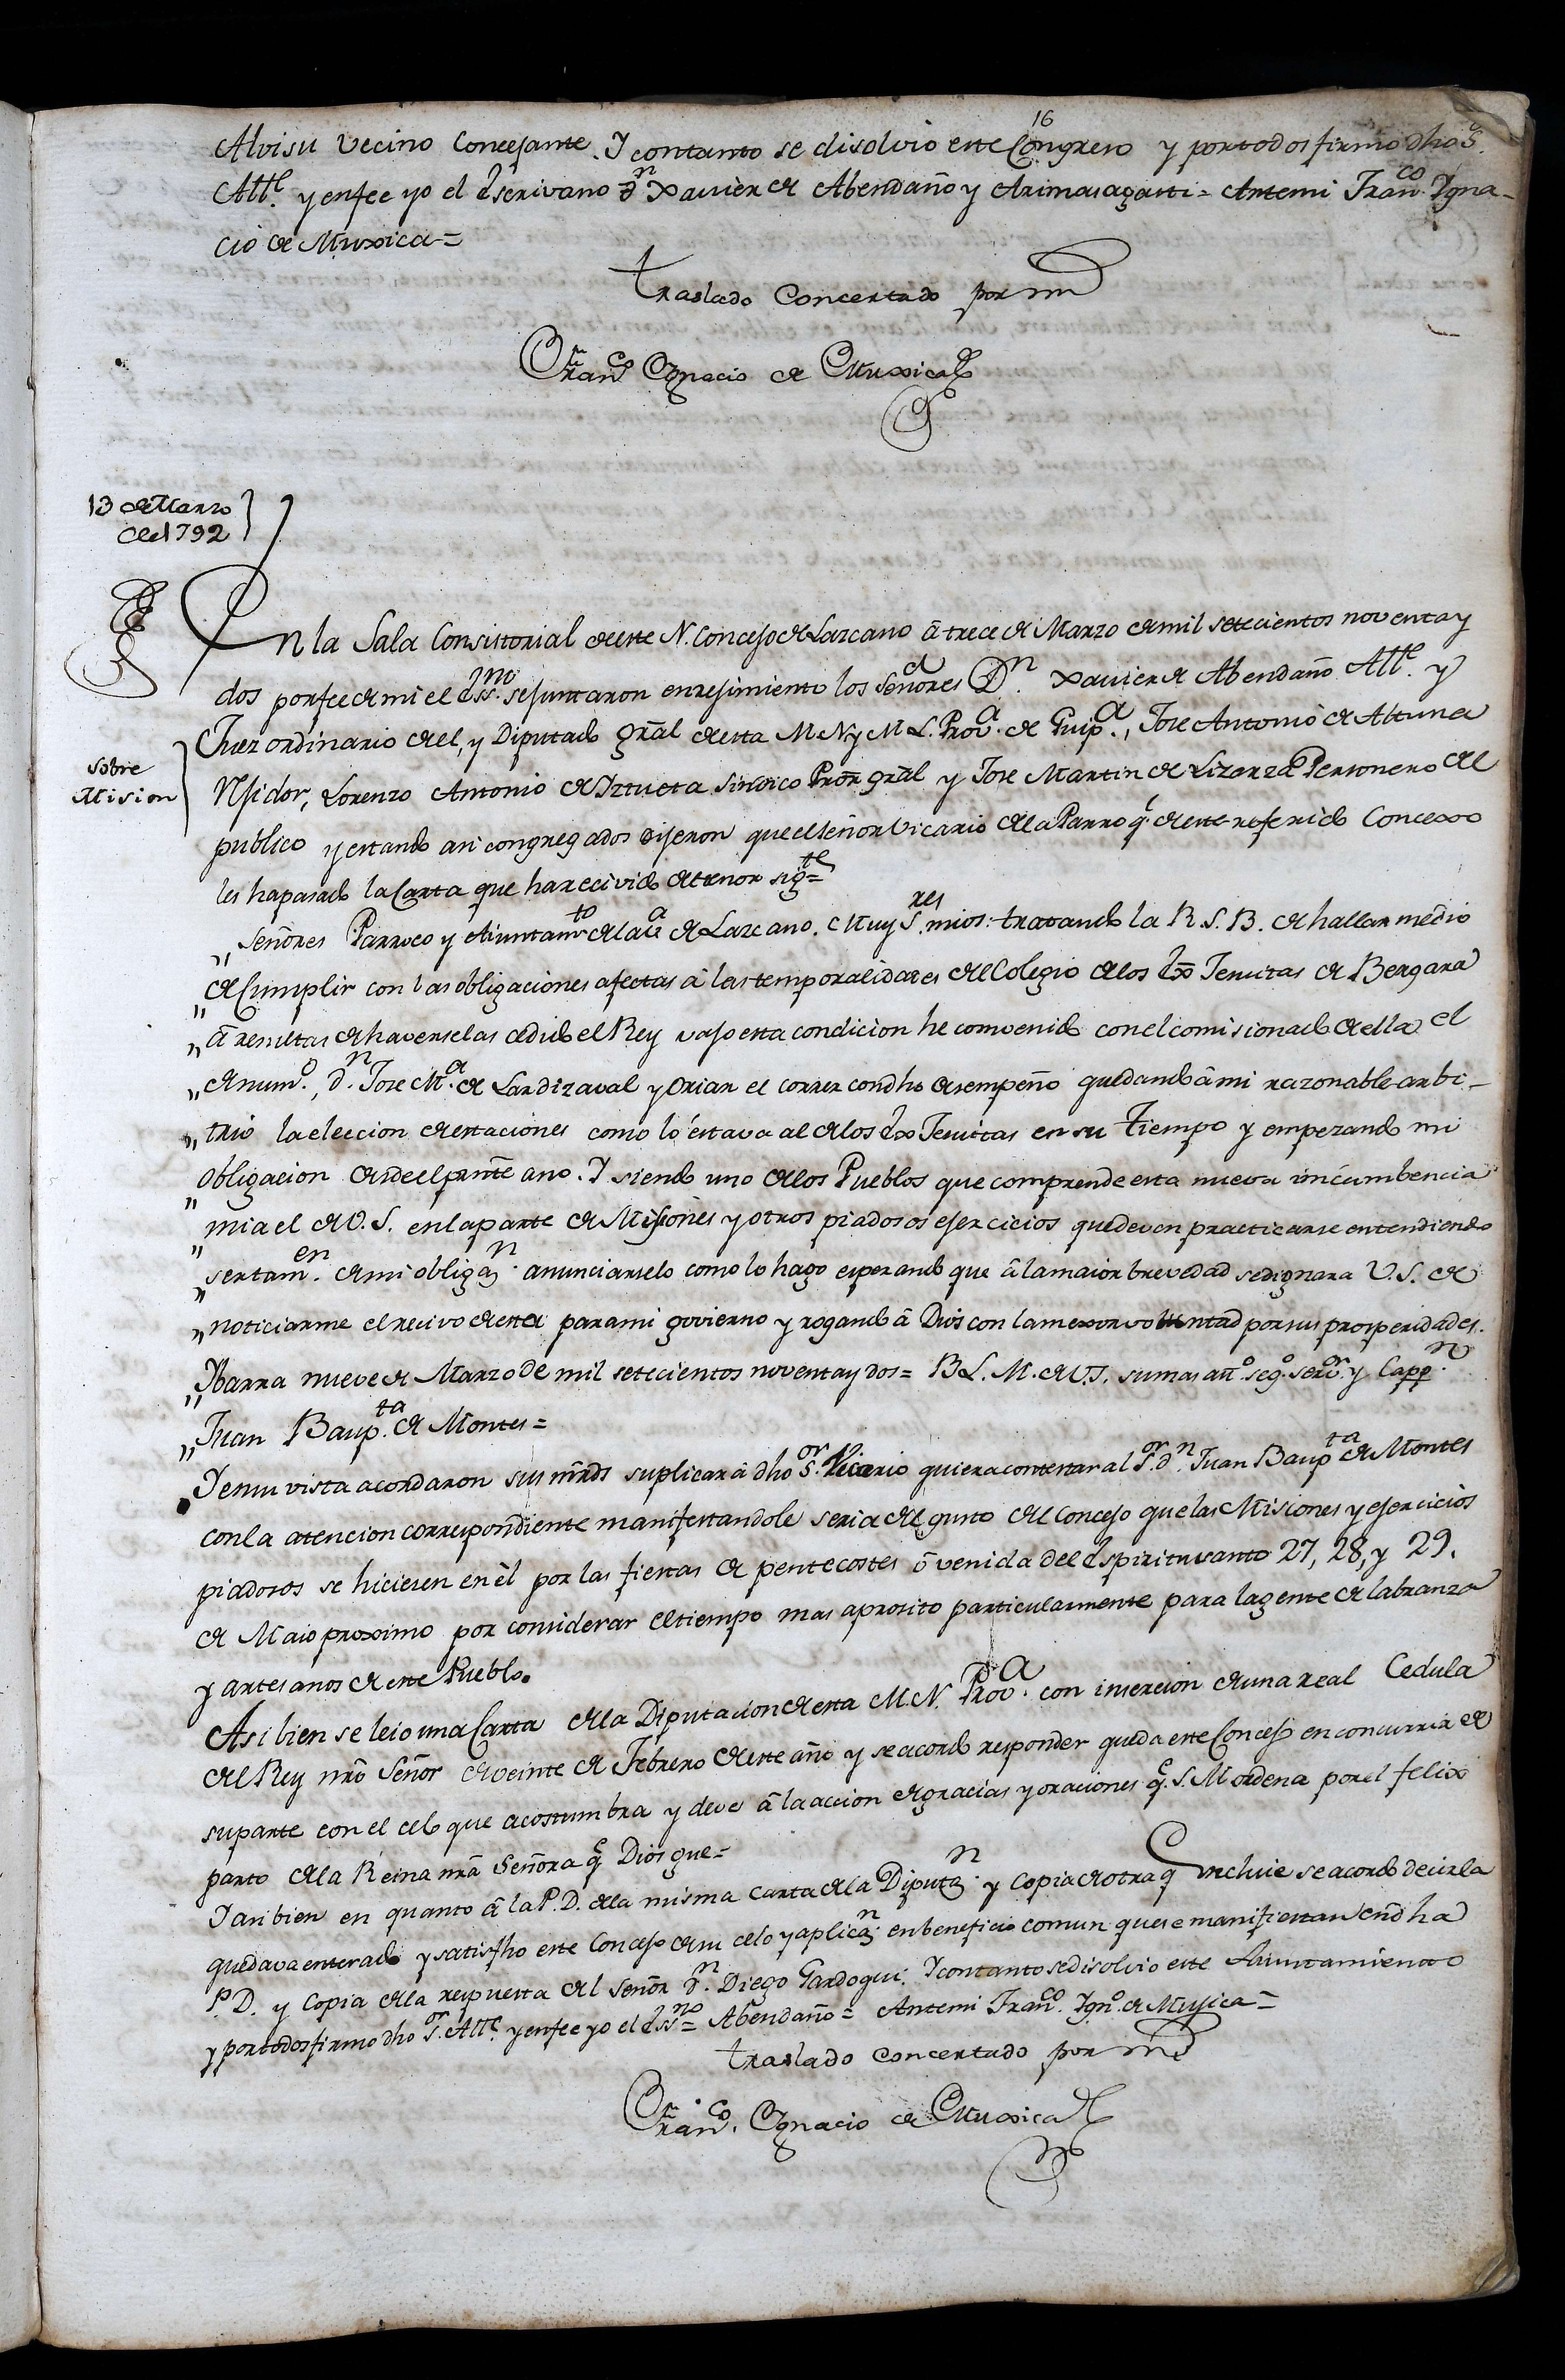 16
Alvisu vecino Concejante. Y contanto se disolvio este Congreso y portodos firmo dho S.r
Alle. y enfee yo el Escrivano Dn Xavier de Abendaño y Arimasagasti = Antemi Franco. Ygna-
cio de Muxica =
traslado Concertado por mi
Franco Ygnacio de Muxica
13 de Marzo
de 1792
En la Sala Consistorial de este N. Concejo de Lazcano â trece de Marzo de mil setecientos noventa y
dos por fee de mi el Essno. se juntaron en rejimiento los señores Dn. Xavier de Abendaño Alle. y
Juez ordinario de el, y Diputado gral de esta M N y M L. Prova. de Guipa., Jose Antonio de Altuna
sobre
Mision
Rejidor, Lorenzo Antonio de Iztueta Sindico Pror gral y Jose Martin de Lizarza Personero del
publico y estando asi congregados dijeron que el señor Vicario de la Parroqe de este referido Concexo
les ha pasado la Carta que ha recivido del tenor sigte =
" Señores Parroco y Aiuntamto de la Va de Lazcano. Muy S.res mios: tratando la R. S. B. de hallar medio
" de Cumplir con las obligaciones afectas â las temporalidades del Colegio de los Ex Jesuitas de Bergara
" â resultas de haverselas cedido el Rey vajo esta condicion he convenido con el comisionado de ella el
" de numo., dn. Jose Ma. de Lardizaval y Oriar el correr con dho desempeño quedando â mi razonable arbi-
" trio la eleccion de estaciones como lo éstava al de los Ex Jesuitas en su tiempo y empezando mi
" obligacion desde el prnte ano. Y siendo uno de los Pueblos que comprende esta nueva incumbencia
" mia el de V. S. en la parte de Misiones y otros piadosos ejercicios que deven practicarse entendiendo
" ser tamen. de mi obligan. anunciarselo como lo hago esperando que â la maior brevedad se dignara V. S. de
" noticiarme el recivo de esta para mi govierno y rogando â Dios con la mexor voluntad por sus prosperidades.
" Ybarra nueve de Marzo de mil setecientos noventa y dos = B L. M. de V. S. su mas ato. sego. servor. y Cappn.
" Juan Baupta. de Montes =
Y en su vista acordaron sus mrds suplicar â dho Sor. Vicario quiera contestar al Sor. dn. Juan Baupta de Montes
con la atencion correspondiente manifestandole seria del gusto del Concejo que las Misiones y ejercicios
piadosos se hiciesen en èl por las fiestas de pentecostes ô venida del Espiritusanto 27, 28, y 29.
de Maio proximo por considerar el tiempo mas aprosito particularmente para la gente de labranza
y artesanos de este Pueblo.
Asi bien se leio una Carta de la Diputacion de esta M. N. Prova. con insercion de una real Cedula
del Rey nro Señor de veinte de Febrero de este año y se acordo responder queda este Concejo en concurrir de
su parte con el celo que acostumbra y deve â la accion de gracias y oraciones qe. S. M ordena por el felix
parto de la Reina nra Señora qe Dios gue =
Y asi bien en quanto â la P. D. de la misma carta de la Diputn. y Copia de otra qe incluie se acordo decirla
quedava enterado y satisfho este Concejo de su celo y aplican. en beneficio comun que se manifiestan en dha
P. D. y Copia de la respuesta del Señor dn. Diego Gardoqui. Y contanto se disolvio este Aiuntamiento
y portodos firmo dho Sor. Alle. y enfee yo el Essno = Abendaño = Antemi Franco. Ygno. de Mujica =
traslado concertado por mi
Franco. Ygnacio de Muxica